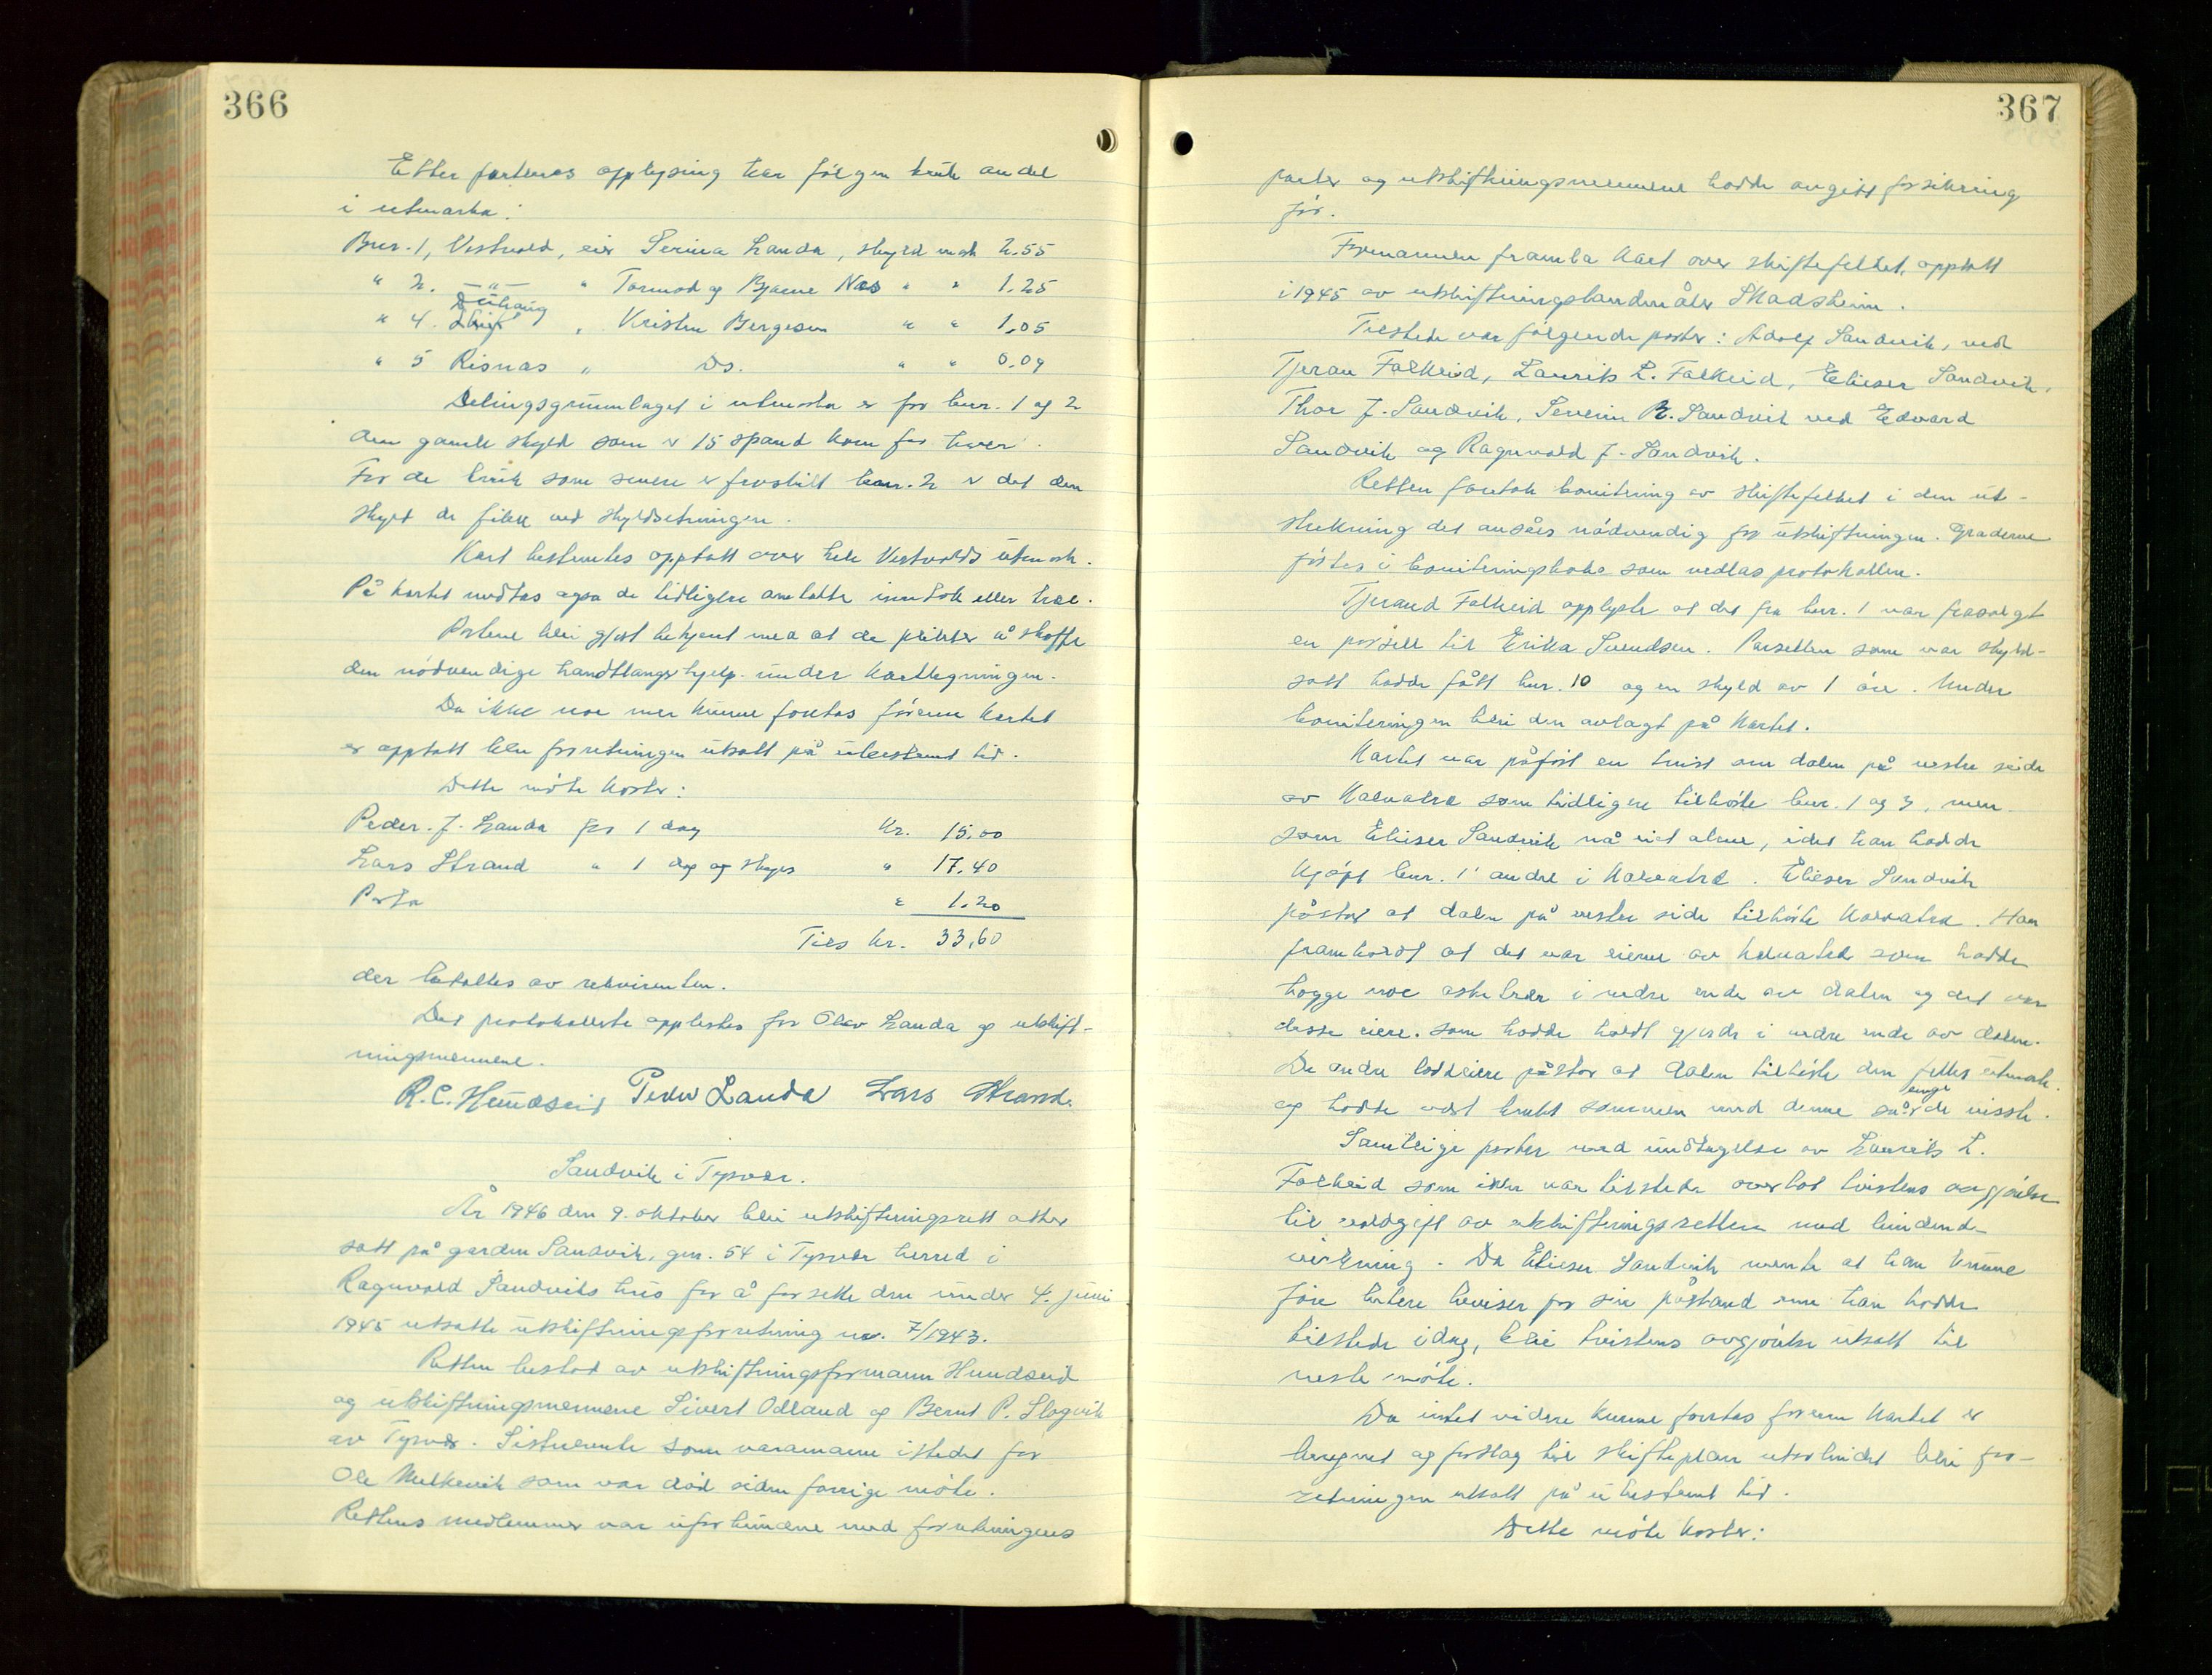 366
Etter partenes opplysing har følgen bruk andel
i utmarka:
Bnr. 1, Vestvold, eier Serina Landa, skyld mark 2.55
" 2. —"— " Tormod og Bjarne Nes " " 1.25
" 4. Duhaug " Kristen Bergesen " " 1.05
" 5 Risnas " Ds. " " 0.09
Delingsgrunnlaget i utmarka er for bnr. 1 og 2
den gamle skyld som er 15 spand korn for hver.
For de bruk som senere er fraskilt bnr. 2 er det den
skyld de fikk ved skyldsetningen.
Kart bestemtes opptatt over hele Vestvolds utmark.
På kartet medtas også de tidligere omtalte inntak eller trae.
Partene blei gjort bekjent med at de plikter å skaffe
den nödvendige handtlangerhjelp under kartlegningen.
Da ikke noe mer kunne foretas förenn kartet
er opptatt blei forretningen utsatt på ubestemt tid.
Dette möte koster:
Peder J. Landa for 1 dag kr. 15.00
Lars Strand " 1 dag og skyss " 17.40
Porto " 1.20
Tils kr. 33.60
der betaltes av rekvirenten.
Det protokollerte opplestes for Olav Landa og utskift-
ningsmennene.
R.C. Hundseid Peder Landa Lars Strand.
Sandvik i Tysvær.
År 1946 den 9. oktober blei utskiftningsrett atter
satt på garden Sandvik, gnr. 54 i Tysvær herred i
Ragnvald Sandviks hus for å forsette den under 4. juni
1945 utsatte utskiftningsforretning nr. 7/1943.
Retten bestod av utskiftningsformann Hundseid
og utskiftningsmennene Sivert Odland og Bernt P. Slogvik
av Tysvær. Sistnevnte som varamann istedet for
Ole Melkevik som var död siden forrige möte.
Rettens medlemmer var uforbundne med forretningens
367
parter og utskiftningsmennene hadde avgitt forsikring
för.
Formannen framla kart over skiftefeltet, opptatt
i 1945 av utskiftningslandmåler Skadsheim.
Tilstede var fölgende parter: Adolf Sandvik, ved
Tjeran Falkeid, Laurits L. Falkeid, Elieser Sandvik,
Thor J. Sandvik, Severin R. Sandvik ved Edvard
Sandvik og Ragnvald J. Sandvik.
Retten foretok bonitering av skiftefeltet i den ut-
strekning det ansåes nödvendig for utskiftningen. Graderne
förtes i boniteringsboka som vedlas protokollen.
Tjerand Falkeid opplyste at det fra bnr. 1 var frasolgt
en parsell til Erika Svendsen. Parsellen som var skyld-
satt hadde fått bnr. 10 og en skyld av 1 öre. Under
boniteringen blei den avlagt på kartet.
Kartet var påfört en tvist om dalen på vestre side
av Kalvatræ som tidligere tilhörte bnr. 1 og 3, men
som Elieser Sandvik nå eiet alene, idet han hadde
kjöpt bnr. 1' andel i Kalvatræ. Elieser Sandvik
påstod at dalen på vestre side tilhörte Kalvatræ. Han
framholdt at det var eierne av Kalvatræ som hadde
hogge noe osketrær i nedre ende av dalen og det var
disse eiere som hadde holdt gjerde i nedre ende av dalen.
De andre lodd eiere påstod at dalen tilhörte den felles utmark
og hadde vært brukt sammen med denne så lenge de visste.
Samtlige parter med undtagelse av Laurits L.
Falkeid som ikke var tilstede overlot tvistens avgjörelse
til voldgift av utskiftningsretten med bindende
virkning. Da Elieser Sandvik mente at han kunne
före bedre beviser for sin påstand enn han hadde
tilstede idag, blei tvistens avgjörelse utsatt til
neste möte.
Da intet videre kunne foretas förenn kartet er
beregnet og forslag til skifteplan utarbeidet blei for-
retningen utsatt på ubestemt tid.
Dette möte koster: